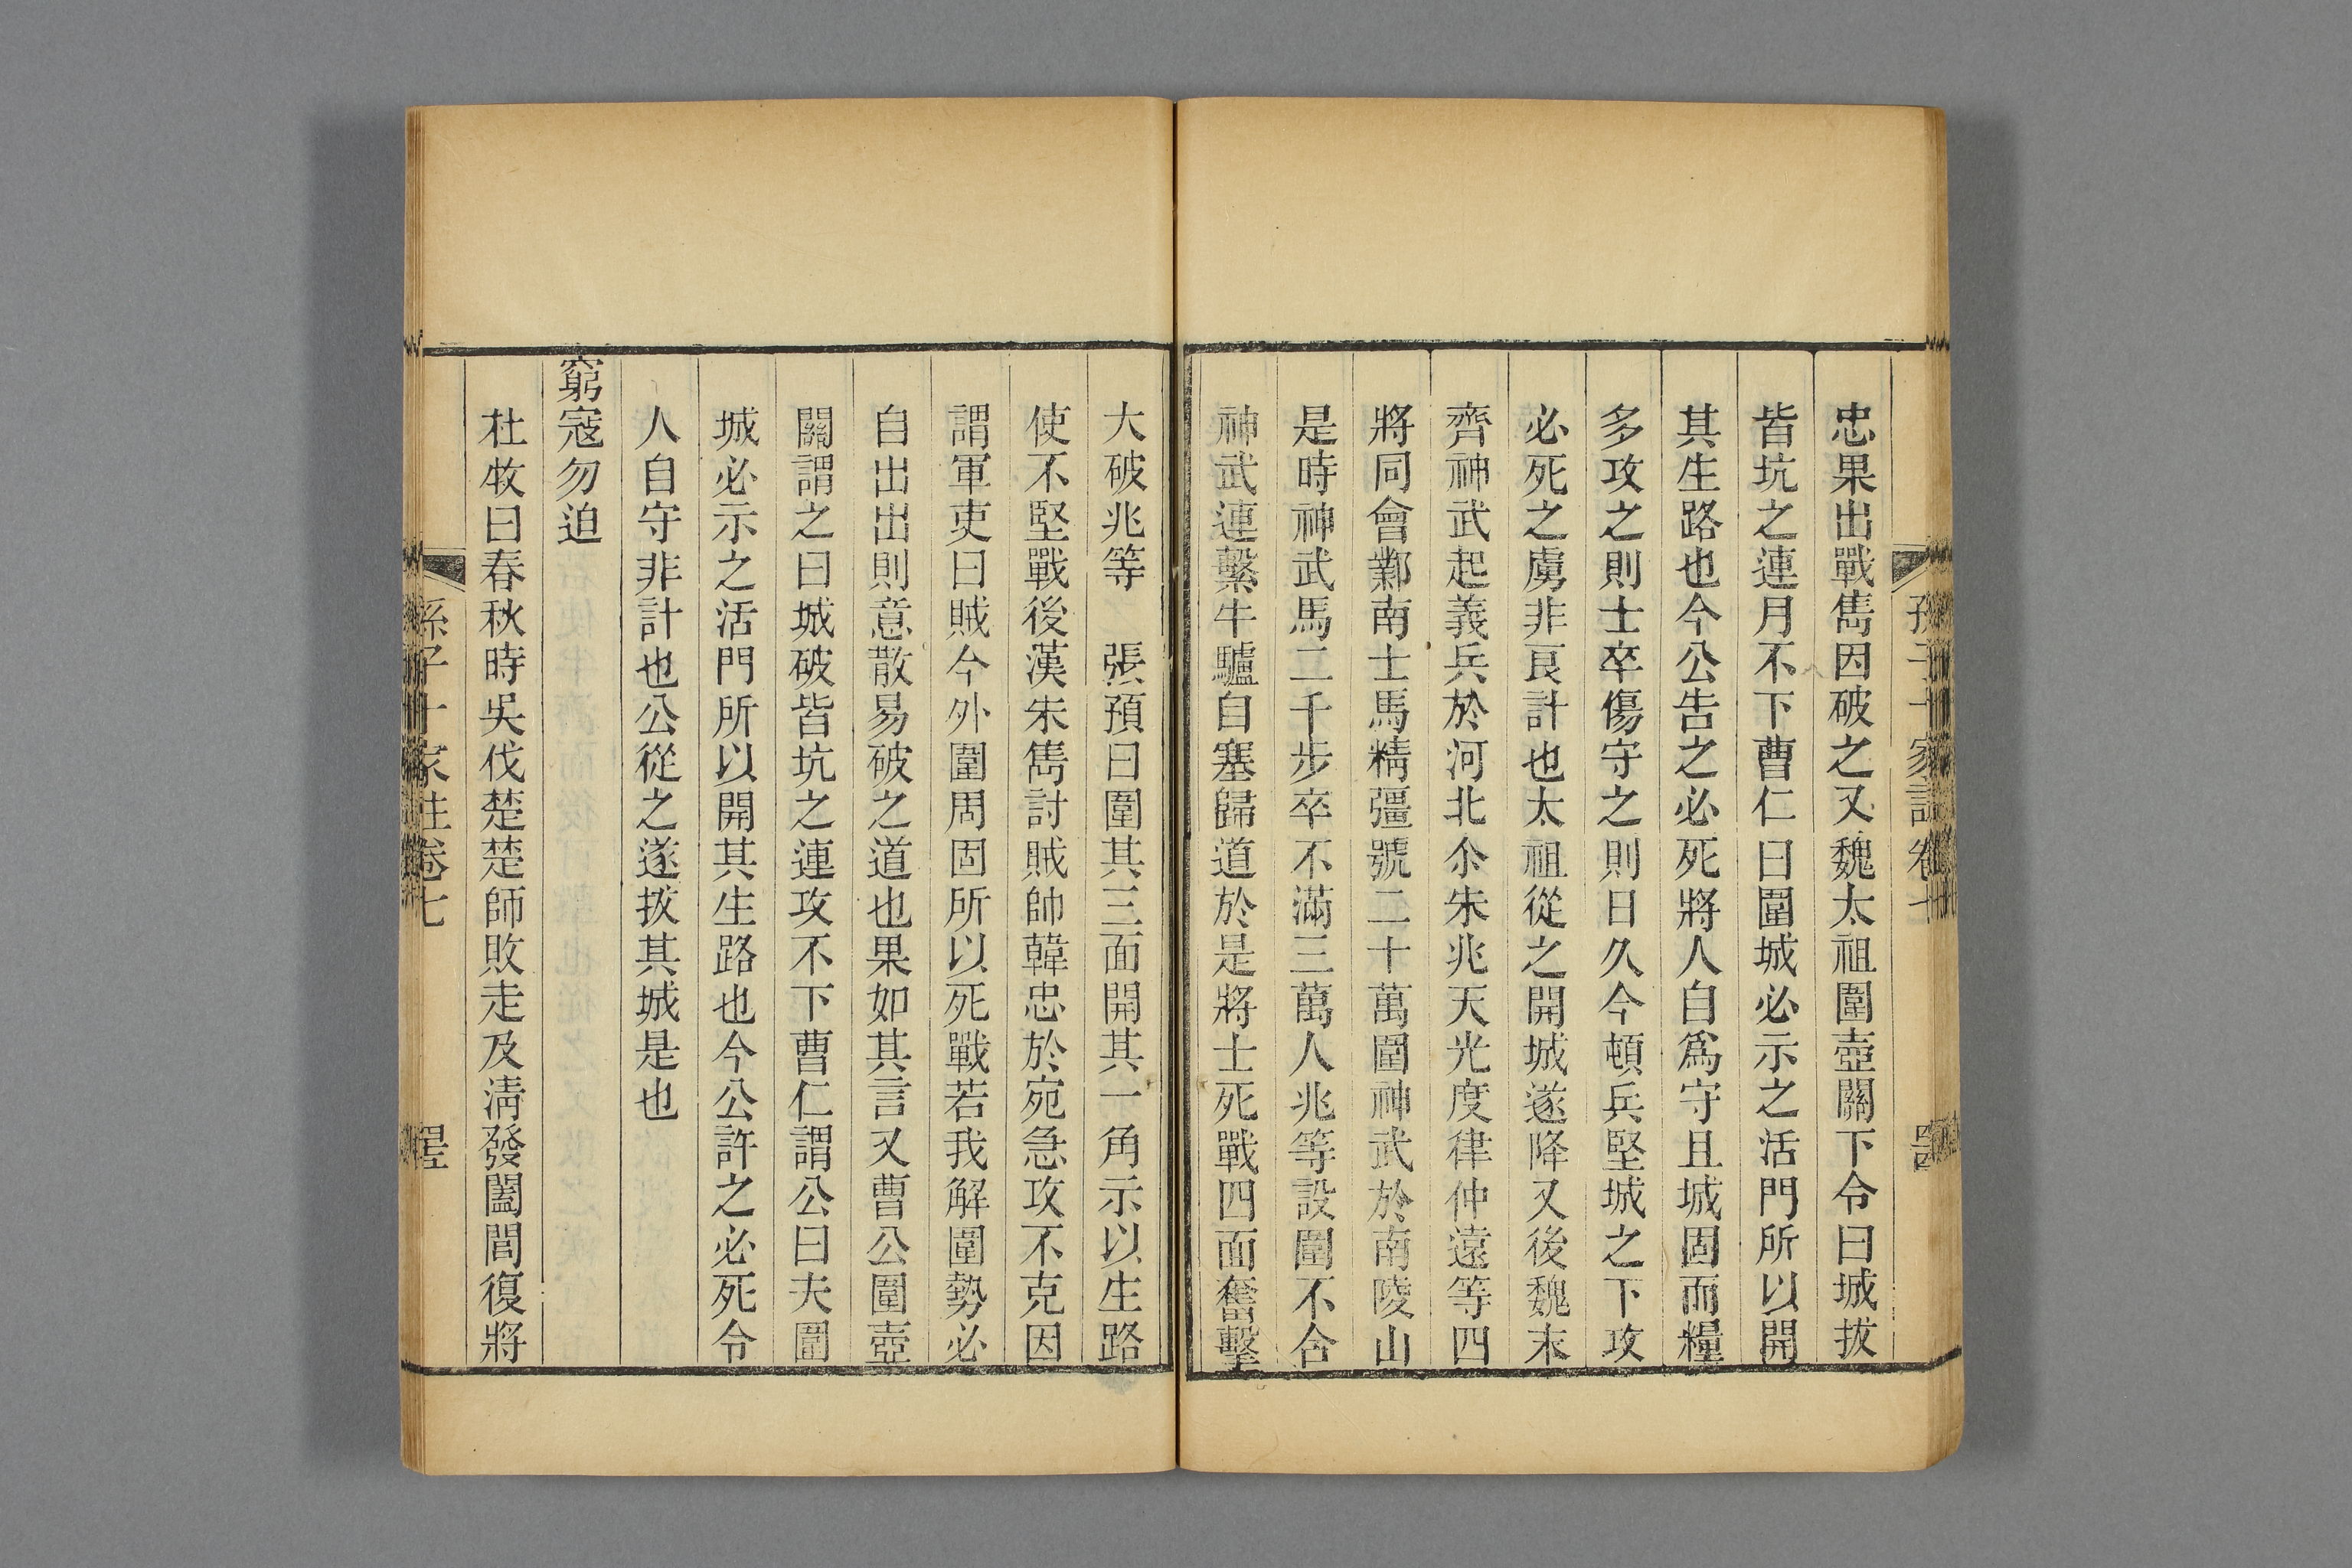 忠果出戰雋因破之又魏太祖圍壺關下令曰城拔
皆坑之連月不下曹仁曰圍城必示之活門所以開
其生路也今公告之必死將人自爲守且城固而糧
多攻之則士卒傷守之則日久今頓兵堅城之下攻
必死之虜非良計也太祖從之開城遂降又後魏末
齊神武起義兵於河北尒朱兆天光度律仲遠等四
將同會鄴南士馬精彊號二十萬圍神武於南陵山
是時神武馬二千步卒不滿三萬人兆等設圍不合
神武連繫牛驢自塞歸道於是將士死戰四面奮擊
大破兆等　張預曰圍其三面開其一角示以生路
使不堅戰後漢朱雋討賊帥韓忠於宛急攻不克因
謂軍吏曰賊今外圍周固所以死戰若我解圍勢必
自出出則意散易破之道也果如其言又曹公圍壺
關謂之曰城破皆坑之連攻不下曹仁謂公曰夫圍
城必示之活門所以開其生路也今公許之必死令
人自守非計也公從之遂拔其城是也
窮寇勿迫
杜牧曰春秋時吳伐楚楚師敗走及淸發闔閭復將
孫子十家註卷七